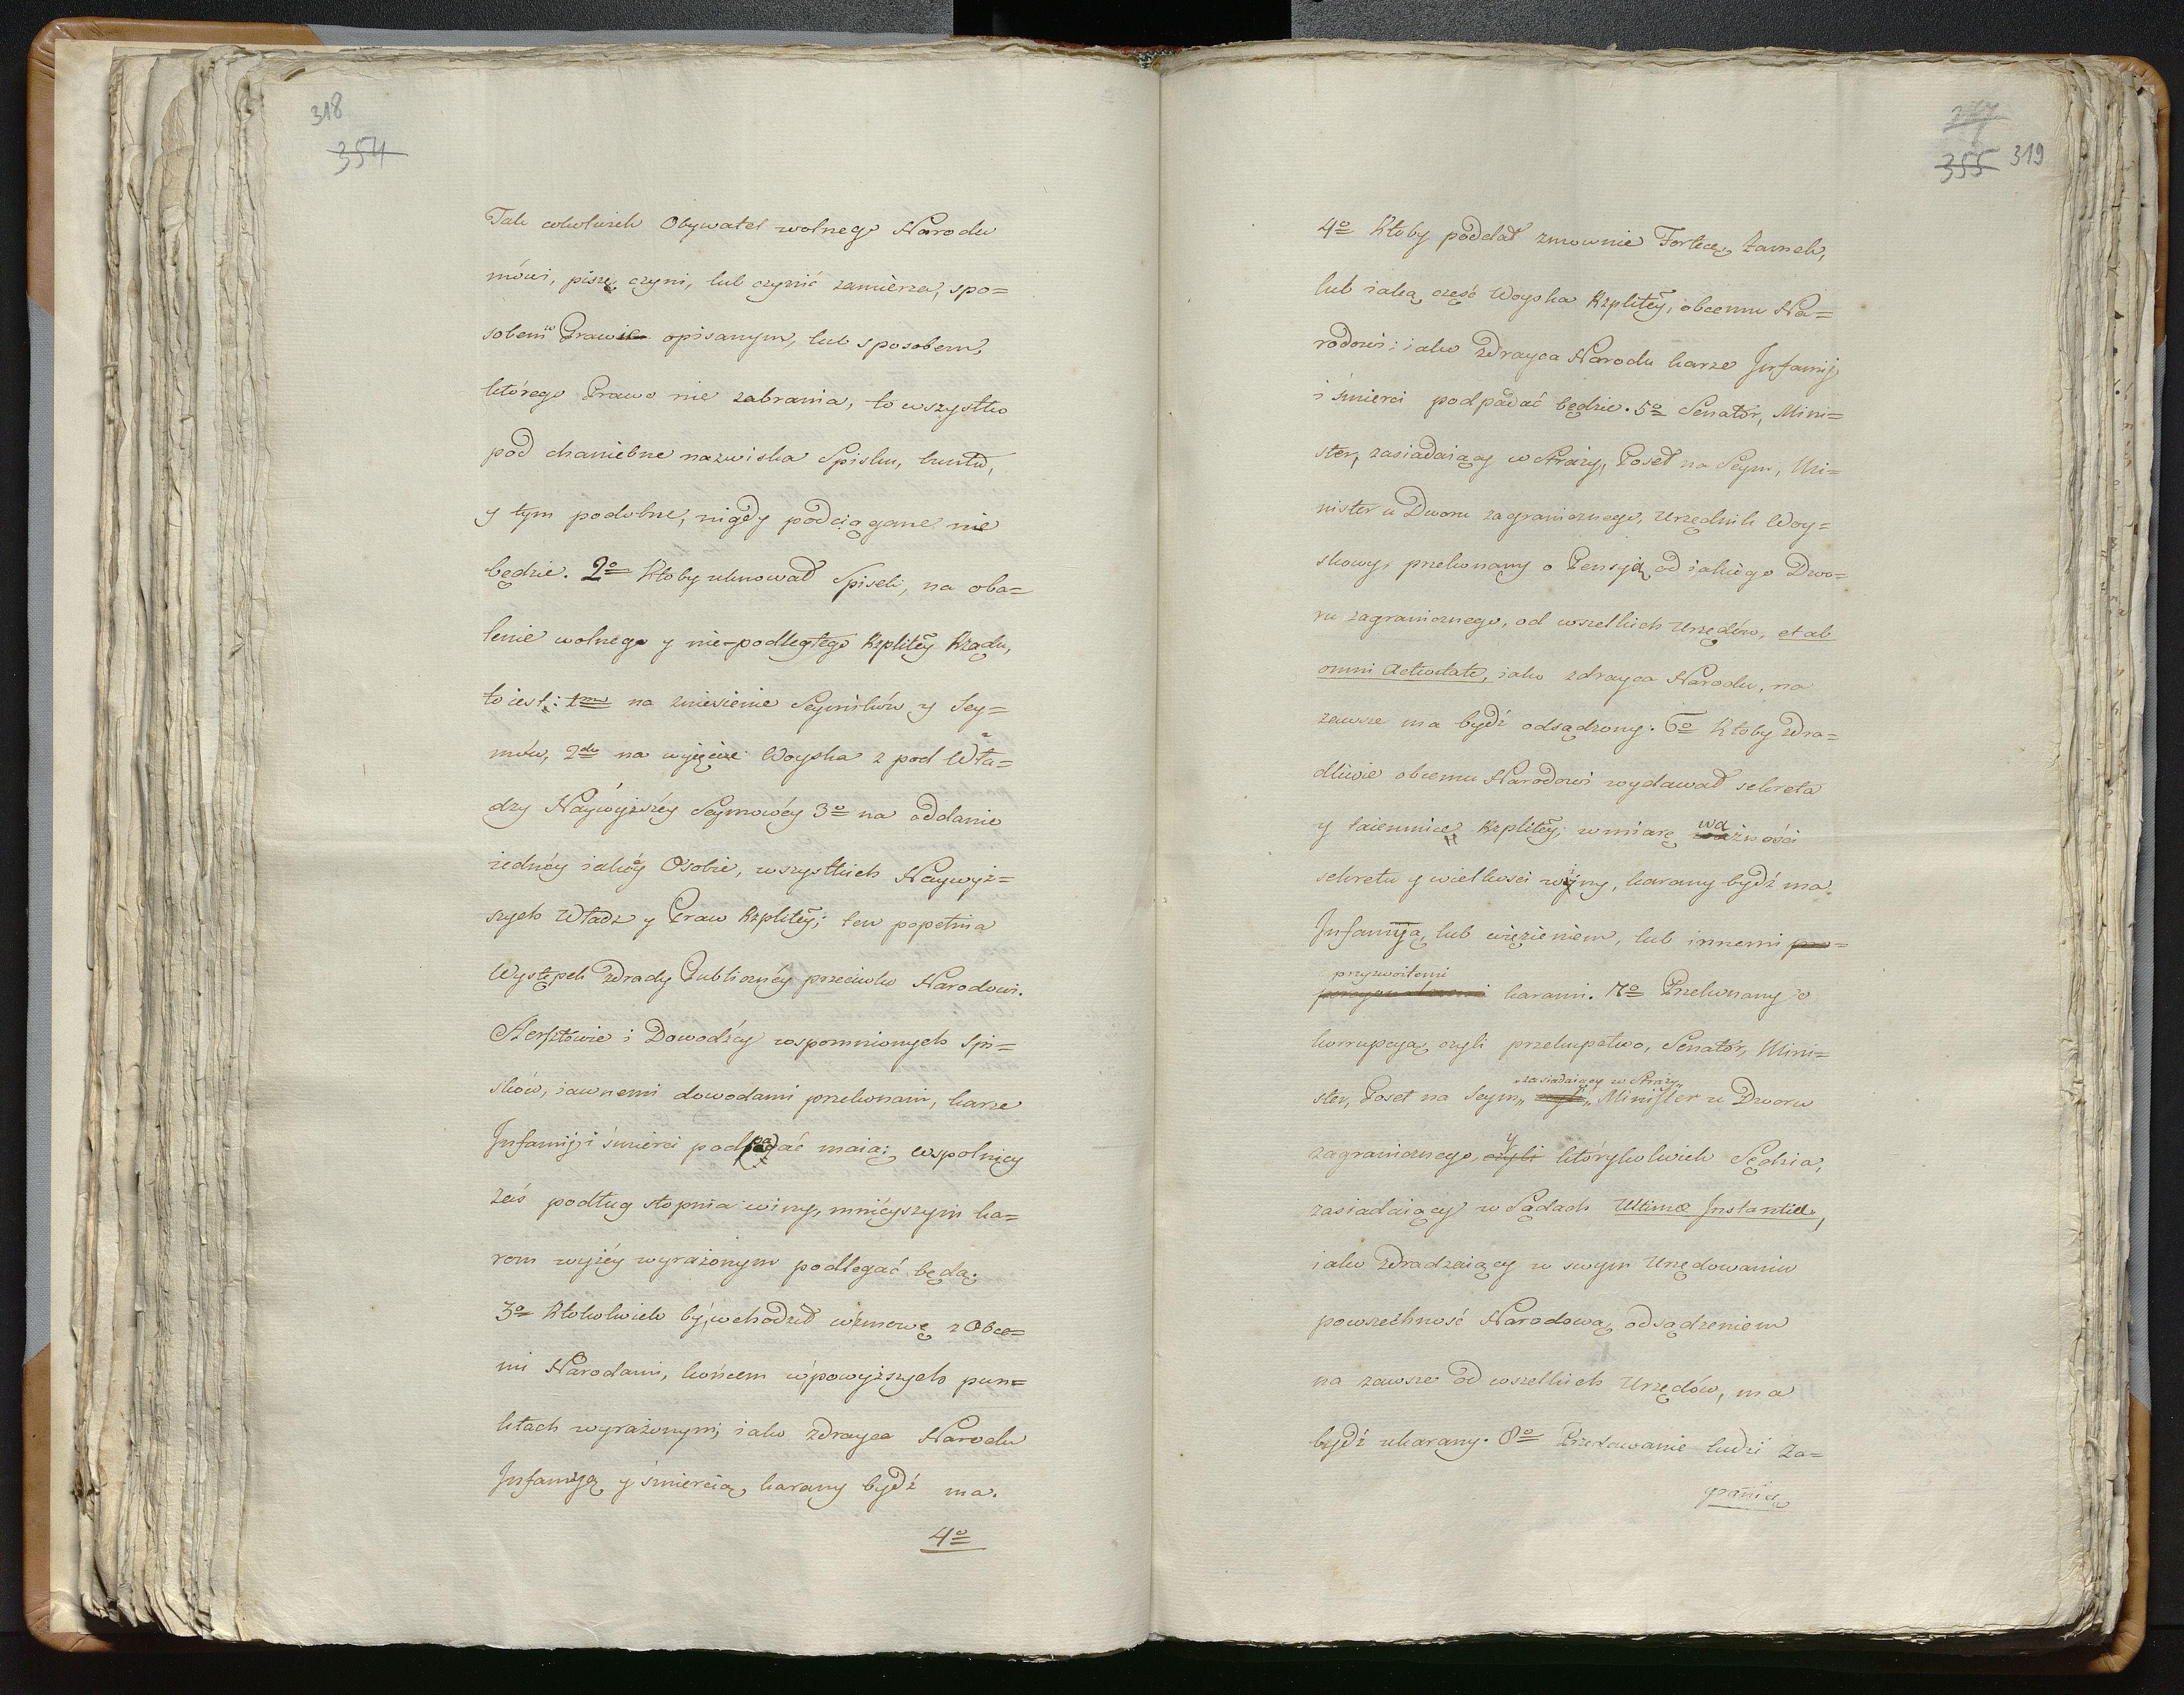 318
354
Tak cokolwiek Obywatel wolnego Narodu
mówi, pisze, czyni, lub czynić zamierza, spo=
sobem w Prawie opisanym, lub sposobem,
którego Prawo nie zabrania, to wszystko
pod chaniebne nazwiska Spisku, buntu,
y tym podobne, nigdy podciągane nie
będzie. 2o Ktoby uknował Spisek, na oba=
lenie wolnego y nie-podległego Rzpltéy Rządu,
to iest: 1mo na zniesienie Seymików y Sey=
mów, 2do na wyięcie Woyska z pod Wła=
dzy Naywyższéy Seymowéy 3o na oddanie
iednéy iakiéy Osobie, wszystkich Naywyż=
szych Władz y Praw Rzpltéy; ten popełnia
Występek zdrady Publicznéy przeciwko Narodowi.
Hersztowie i Dowodźcy wspomnionych Spi=
sków, iawnemi dowodami przekonani, karze
Infamij i śmierci podpadać maią; wspolnicy
zaś podług stopnia winy, mniéyszym ka=
rom wyżéy wyrażonym podlegać będą.
3o Ktokolwiek by wchodził w zmowę z Obce=
mi Narodami, końcem w powyższych pun=
ktach wyrażonym; iako zdrayca Narodu
Infamiją y śmiercią karany bydź ma.
4o
355 319
4o Ktoby poddał zmownie Fortecę, Zamek,
lub iaką część Woyska Rzpltéy, obcemu Na=
rodowi; iako zdrayca Narodu karze Infamij
i śmierci podpadać będzie. 5o Senator, Mini=
ster, zasiadaiący w Straży, Poseł na Seym, Mi=
nister u Dworu zagranicznego, Urzędnik Woy=
skowy, przekonany o Pensyą od iakiego Dwo=
ru zagranicznego, od wszelkich Urzędów, et ab
omni Activitate, iako zdrayca Narodu, na
zawsze ma bydź odsądzony. 6o Ktoby zdra=
dliwie obcemu Narodowi wydawał sekreta
y taiemnice Rzpltéy; w miarę ważności
sekretu y wielkosci winy, karany bydź ma
Infamiją, lub więzieniem, lub innemi pro=
przyzwoitemi
karami. 7o Przekonany o
korrupcyą czyli przekupstwo, Senator, Mini=
zasiadaiący w Straży
ster, Poseł na Seym, Minister u Dworu
y
zagranicznego, czyli którykolwiek Sędzia,
zasiadaiący w Sądach Ultimæ Instantiæ,
iako zdradzaiący w swym Urzędowaniu
powszechność Narodową, odsądzeniem
na zawsze od wszelkich Urzędów, ma
bydź ukarany. 8o Przedawanie ludzi za=
granicę